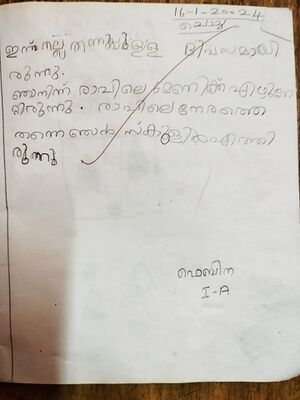 16-1-2024
ചൊവ്വ
ഇന്ന് നല്ല തണുപ്പുള്ള ദിവസമായി
രുന്നു.
ഞാനിന്ന് രാവിലെ മണിക്ക് എഴുന്നേ
റ്റിരുന്നു. രാവിലെ നേരത്തെ
തന്നെ ഞാൻ സ്കൂളിൽ എത്തി
രുന്നു
ഫെബിന
I-A